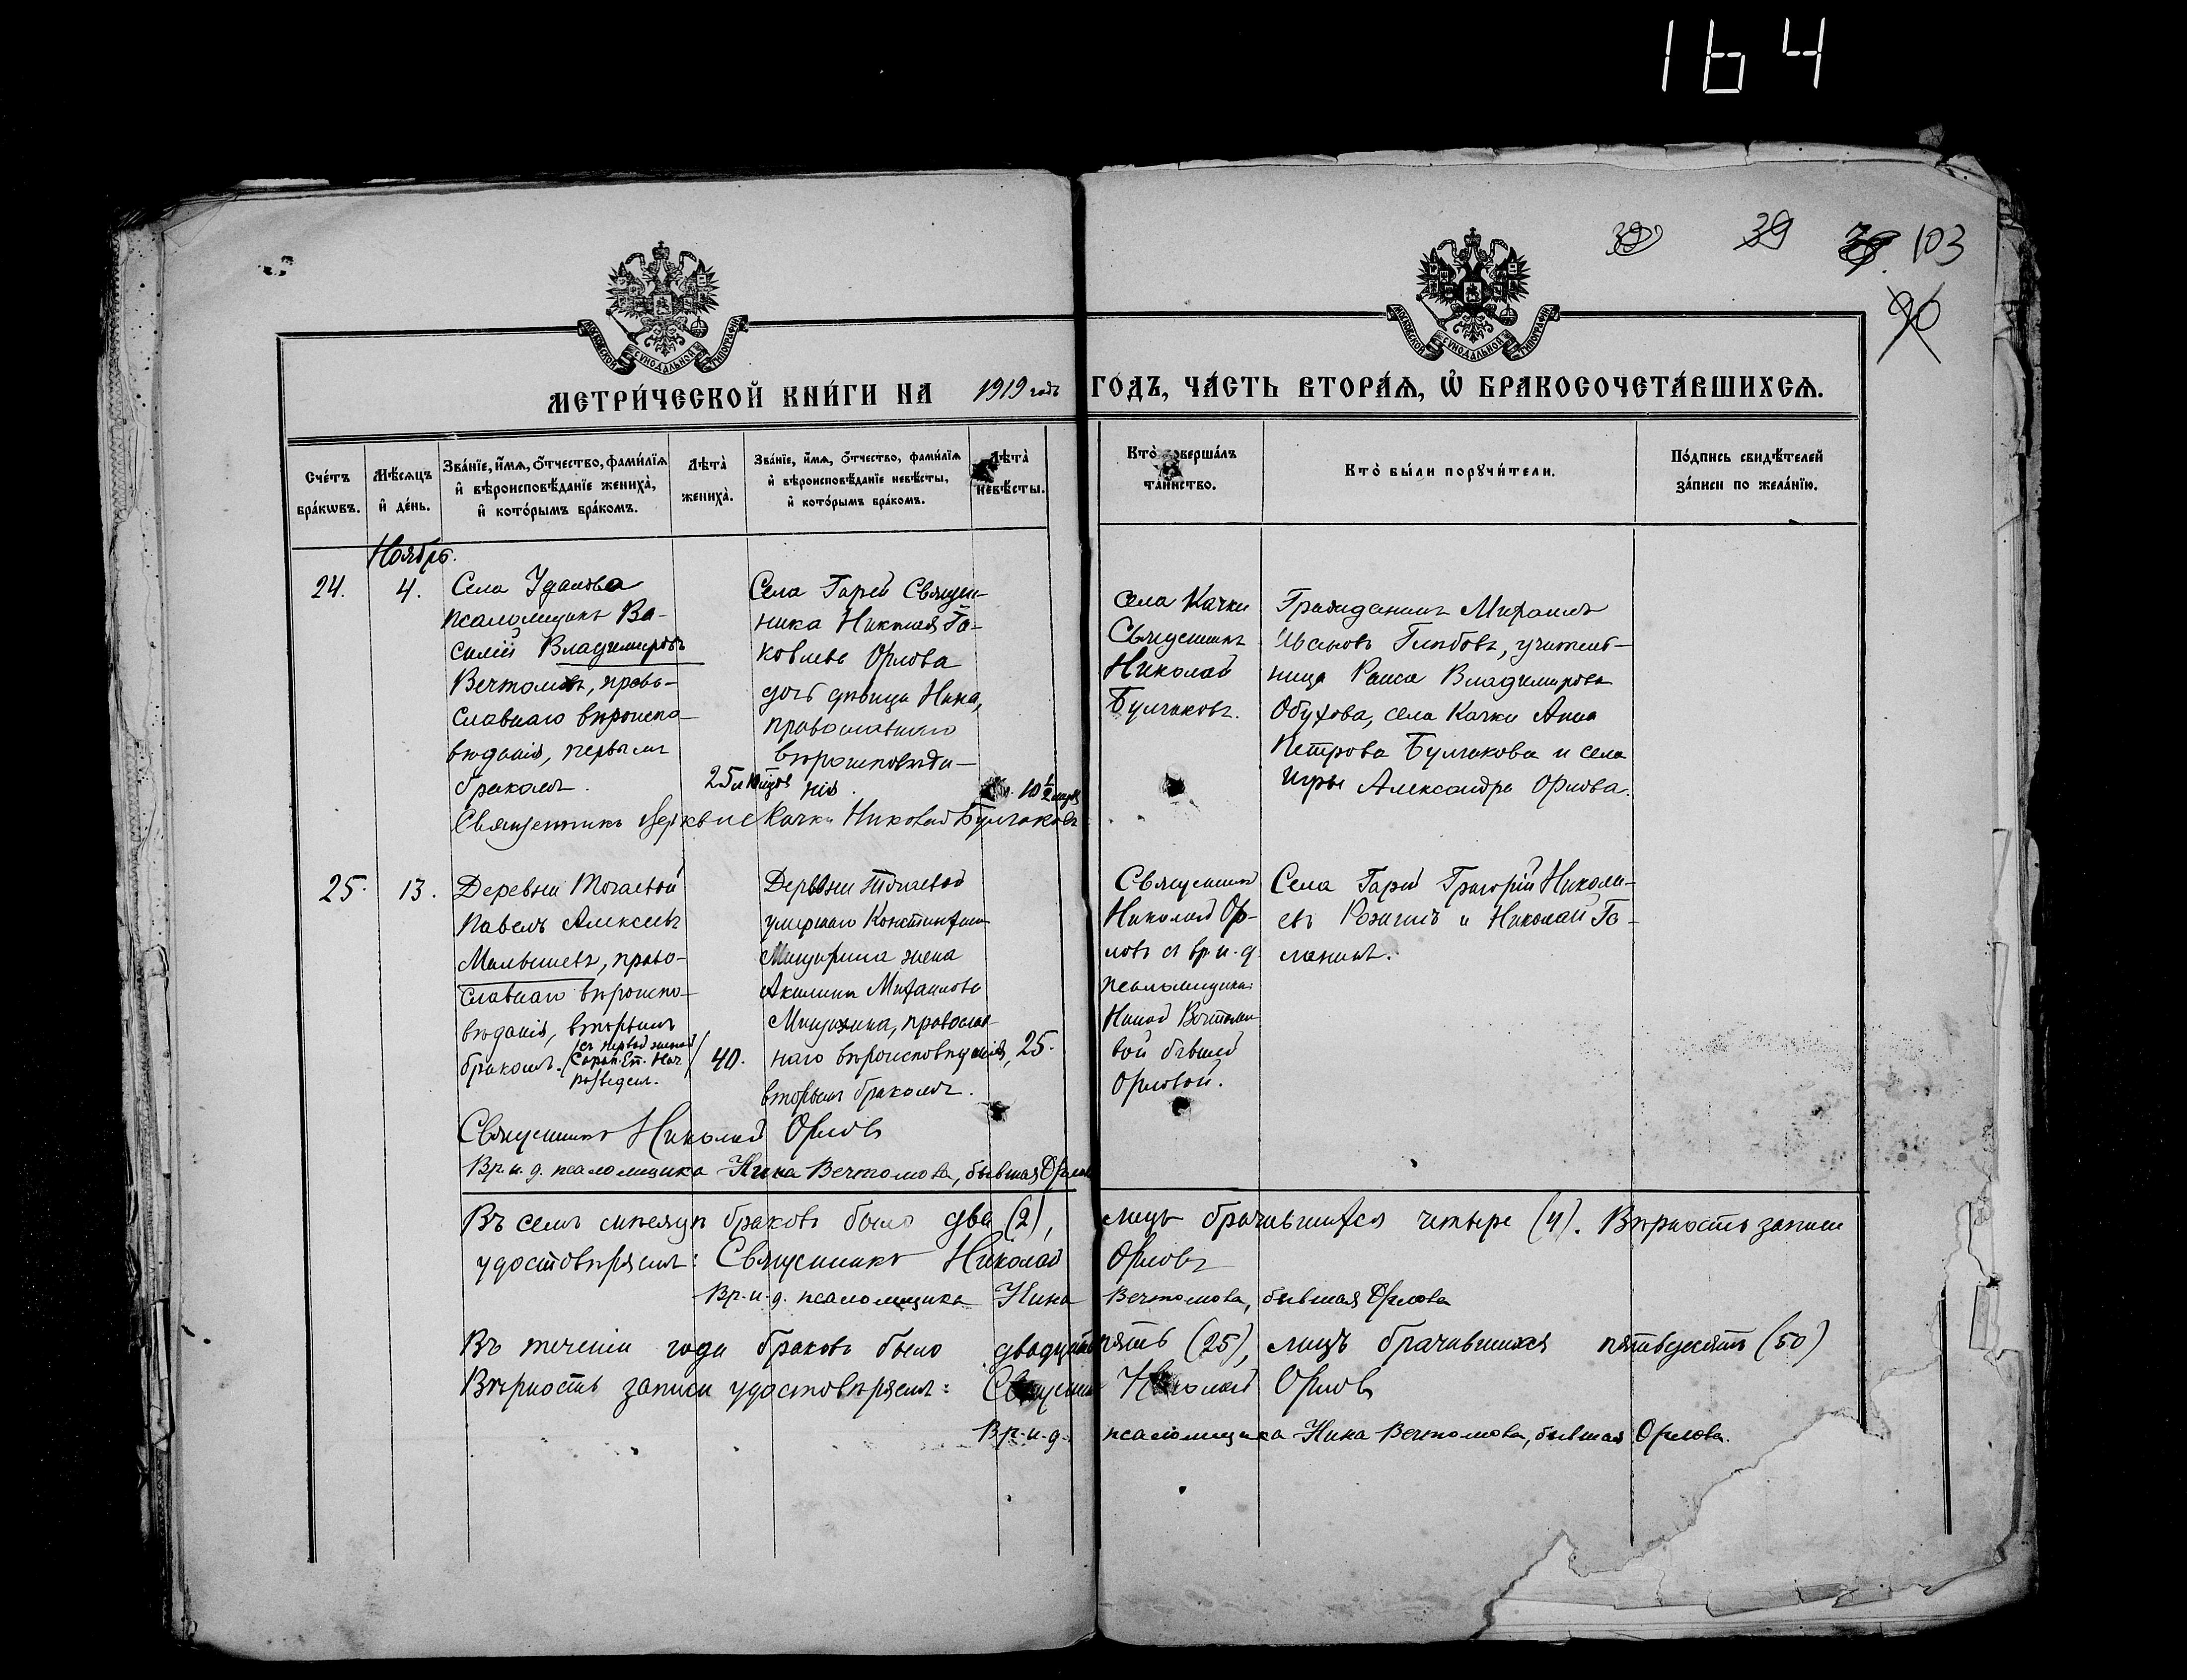 164
39 39 39 103
90
МОСКОВСКОЙ СѴНОДАЛЬНОЙ ТИПОГРАФІИ
МОСКОВСКОЙ СѴНОДАЛЬНОЙ ТИПОГРАФІИ
МЕТРИ́ЧЕСКОЙ КНИ́ГИ НА 1919 годъ ГО́ДЪ, ЧА́СТЬ ВТОРА́Ѧ, Ѡ҆ БРАКОСОЧЕТА́ВШИХСѦ.
Сче́тъ бра́кѡвъ.
Мѣ́сѧцъ и҆ де́нь.
Зва́нїе, и҆́мѧ, о҆́тчество, фами́лїѧ и҆ вѣроисповѣ́данїе жениха̀, и҆ кото́рымъ бра́комъ.
Лѣта̀ жениха̀.
Зва́нїе, и҆́мѧ, о҆́тчество, фами́лїѧ и҆ вѣроисповѣ́данїе невѣ́сты, и҆ кото́рымъ бра́комъ.
Лѣта̀ невѣ́сты.
Кто̀ соверша́лъ та́инство.
Кто̀ бы́ли порꙋчи́тели.
По́дпись свидѣ́телей за́писи по жела́нїю.
Ноябрь.
24.
4.
Села
псаломщикъ Ва-
силій Владимировъ
Вечтомовъ, право-
славнаго вѣроиспо-
вѣданія, первымъ
бракомъ.
25
Села Гарей Священ-
ника Николая Га-
ковлева Орлова
дочь дѣвица Нина,
православнаго
вѣроисповѣда-
нія.
10 1/2
Села Качки
Священникъ
Николай
Булгаковъ.
Гражданинъ Михаилъ
Ивановъ Глѣбовъ, учитель-
ница Раиса Владимирова
Обухова, села Качки Анна
Петрова Булгакова и села
Игры Александра Орлова.
Священникъ церкви с Качки Николай Булгаковъ
25.
13.
Деревни
Павелъ Алексѣевъ
Малышевъ, право-
славнаго вѣроиспо-
вѣданія, вторымъ
бракомъ. (съ первой женой
Сарап. Еп. Нач.
разведен.
40.
Деревни
умершаго Константина
жена
Акилина Михаилова
православ-
наго вѣроисповѣданія,
вторымъ бракомъ.
25.
Священникъ
Николай Ор-
ловъ съ вр. и. д.
псаломщика
Ниной Вечтомо-
вой бывшей
Орловой.
Села Гарей Григорій Никола-
евъ и Николай Га-
Священникъ Николай Орловъ
Вр. и. д. псаломщика Нина Вечтомова, бывшая Орлова
Въ семъ мѣсяцѣ браковъ было два (2), лицъ брачившихся четыре (4). Вѣрность записи
удостовѣряемъ: Священникъ Николай Орловъ
Вр. и. д. псаломщика Нина Вечтомова, бывшая Орлова
Въ теченіи года браковъ было двадцать пять (25), лицъ брачившихся пятьдесятъ (50)
Вѣрность записи удостовѣряемъ: Священникъ Николай Орловъ
Вр. и. д. псаломщика Нина Вечтомова, бывшая Орлова.